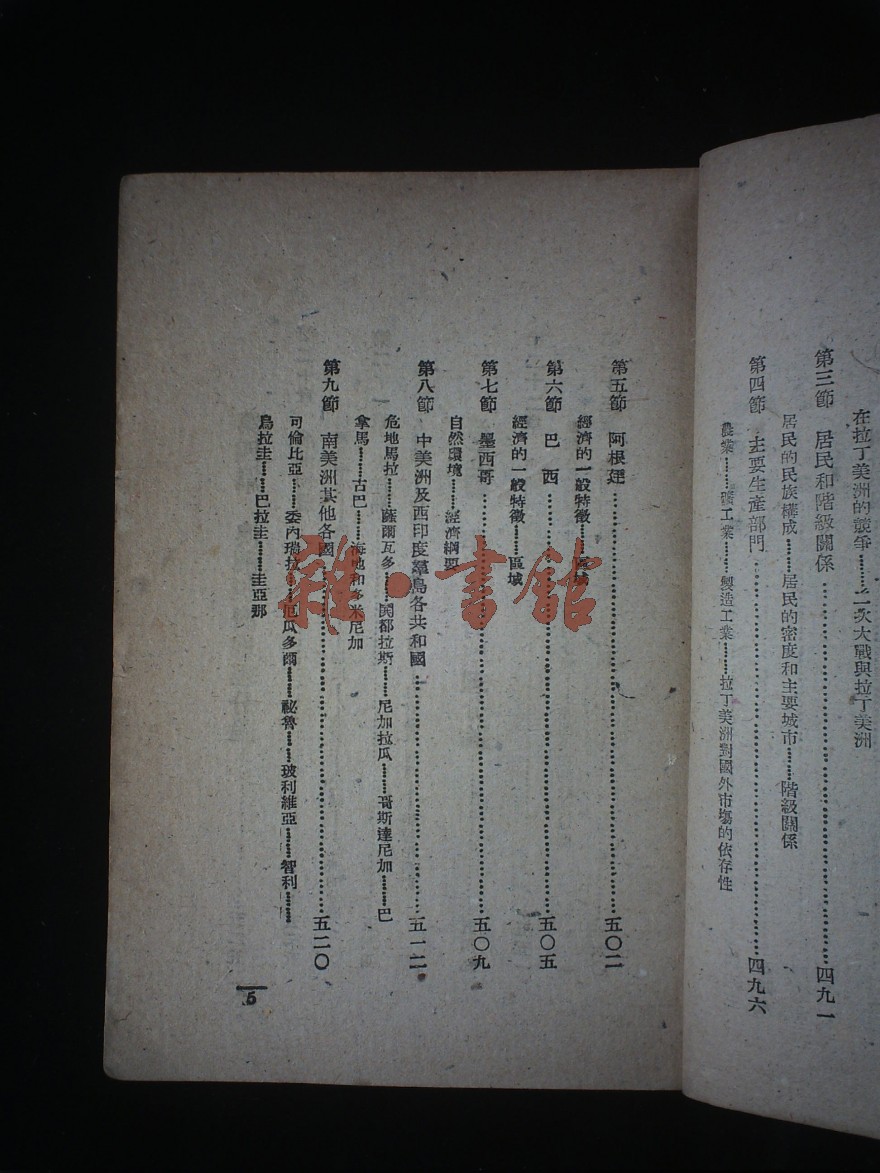 在拉丁美洲的競爭………二次大戰與拉丁美洲
第三節　居民和階級關係…………四九一
居民的民族構成………居民的密度和主要城市………階級關係
第四節　主要生產部門…………四九六
農業………礦工業………製造工業………拉丁美洲對國外市場的依存性
第五節　阿根廷…………五〇二
經濟的一般特徵………區域
第六節　巴　西…………五〇五
經濟的一般特徵………區域
第七節　墨西哥…………五〇九
自然環境………經濟綱要
第八節　中美洲及西印度羣島各共和國…………五一二
危地馬拉………薩爾瓦多………閎都拉斯………尼加拉瓜………哥斯達尼加………巴
拿馬………古巴………海地和多米尼加
第九節　南美洲其他各國…………五二〇
可倫比亞………委內瑞拉………厄瓜多爾………祕魯………玻利維亞………智利………
烏拉圭………巴拉圭………圭亞那
5
雜·書館